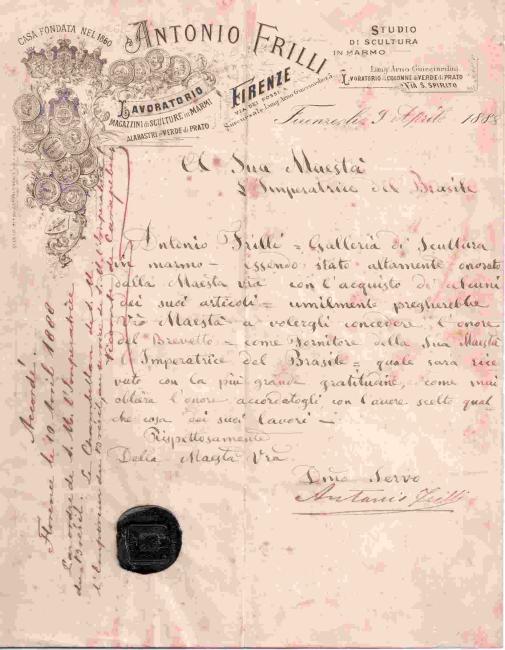 CASA FONDATA NEL 1860
ANTONIO FRILLI
FIRENZE
VIA DEI FOSSI
Succursale, Lung'Arno Guicciardini
LAVORATORIO
MAGAZZINI DI SCULTURE IN MARMI
ALABASTRI E VERDE DI PRATO
STUDIO
DI SCULTURA
IN MARMO
Lung'Arno Guicciardini
LAVORATORIO DI COLONNE DI VERDE DI PRATO
VIA S. SPIRITO
Firenze li 9 Aprile 188
A Sua Maestà
L'Imperatrice del Brasile
Antonio Frilli = Galleria di Scultura
in marmo - essendo stato altamente onorato
dalla Maestà Vra con l'acquisto di alcuni
dei suoi articoli = umilmente pregherebbe
Vra Maestà a volergli concedere l'onore
del Brevetto - come Fornitore della Sua Maestà
l'Imperatrice del Brasile = quale sarà rice
vuto con la più grande gratitudine, come mai
oblierà l'onore accordatogli con l'avere scelto qual
che cosa dei suoi lavori -
Rispettosamente
Della Maestà Vra
Dmo Servo
Antonio Frilli
Accordé.
Florence le 10 Avril 1888
Par ordre de S. M. l'Impératrice
du Brésil. Le Chambellan de S. M.
l'Empereur du Brésil,